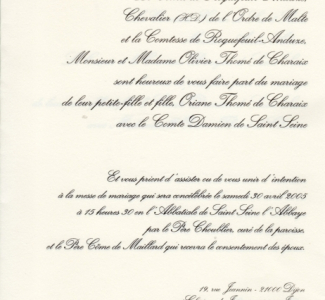 Chevalier (H.D.) de l'Ordre de Malte
et la Comtesse de Roquefeuil-Anduze,
Monsieur et Madame Olivier Thomé de Charaix
sont heureux de vous faire part du mariage
de leur petite-fille et fille, Oriane Thomé de Charaix
avec le Comte Damien de Saint Seine
Et vous prient d'assister ou de vous unir d'intention
à la messe de mariage qui sera concélébrée le samedi 30 avril 2005
à 15 heures 30 en l'Abbatiale de Saint Seine l'Abbaye
par le Père Choublier, curé de la paroisse,
et le Père Côme de Maillard qui recevra le consentement des époux.
19, rue Jeannin - 21000 Dijon